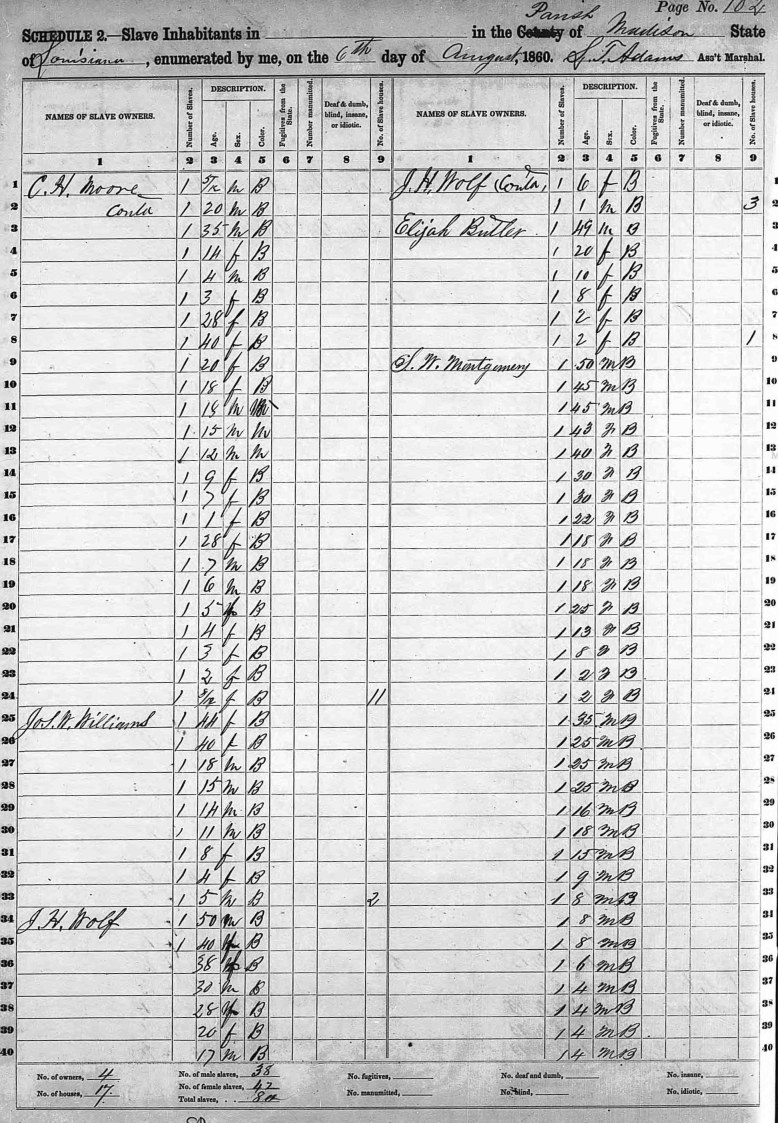 Page No. 102
SCHEDULE 2.—Slave Inhabitants in in the County Parish of Madison State
of Louisiana, enumerated by me, on the 6th day of August, 1860. Adams Ass't Marshal.
NAMES OF SLAVE OWNERS. Number of Slaves. DESCRIPTION. Age. Sex. Color. Fugitives from the State. Number manumitted. Deaf & dumb, blind, insane, or idiotic. No. of Slave houses. NAMES OF SLAVE OWNERS. Number of Slaves. DESCRIPTION. Age. Sex. Color. Fugitives from the State. Number manumitted. Deaf & dumb, blind, insane, or idiotic. No. of Slave houses.
1 2 3 4 5 6 7 8 9 1 2 3 4 5 6 7 8 9
1 C. H. Moore 1 m B J. H. Wolf (Contd, 1 6 f B 1
2 Contd 1 20 m B 1 1 m B 3 2
3 1 35 m B Elijah Butler 1 49 m B 3
4 1 14 f B 1 20 f B 4
5 1 4 m B 1 10 f B 5
6 1 3 f B 1 8 f B 6
7 1 28 f B 1 2 f B 7
8 1 40 f B 1 2 f B 1 8
9 1 20 f B S. W. Montgomery 1 50 m B 9
10 1 18 f B 1 45 m B 10
11 1 m 1 45 m B 11
12 1 15 m M 1 43 B 12
13 1 12 m M 1 40 B 13
14 1 9 f B 1 30 B 14
15 1 7 f B 1 30 B 15
16 1 1 f B 1 22 B 16
17 1 28 f B 1 18 B 17
18 1 7 m B 1 18 B 18
19 1 6 m B 1 18 B 19
20 1 5 B 1 25 B 20
21 1 4 f B 1 13 B 21
22 1 3 f B 1 8 B 22
23 1 2 f B 1 2 B 23
24 1 f B 11 1 2 B 24
25 Jos. W. Williams 1 44 f B 1 35 m B 25
26 1 40 f B 1 25 m B 26
27 1 18 m B 1 25 m B 27
28 1 15 m B 1 25 m B 28
29 1 14 m B 1 16 m B 29
30 1 11 m B 1 18 m B 30
31 1 8 f B 1 15 m B 31
32 1 4 f B 1 9 m B 32
33 1 5 m B 2 1 8 m B 33
34 J. H. Wolf 1 50 m B 1 8 m B 34
35 1 40 f B 1 8 m B 35
36 38 f B 1 6 m B 36
37 30 m B 1 4 m B 37
38 28 f B 1 4 m B 38
39 20 f B 1 4 m B 39
40 17 m B 1 4 m B 40
No. of owners, 4 No. of male slaves, 38 No. fugitives, No. deaf and dumb, No. insane,
No. of houses, 17 No. of female slaves, 42 No. manumitted, No. blind, No. idiotic,
Total slaves, 80